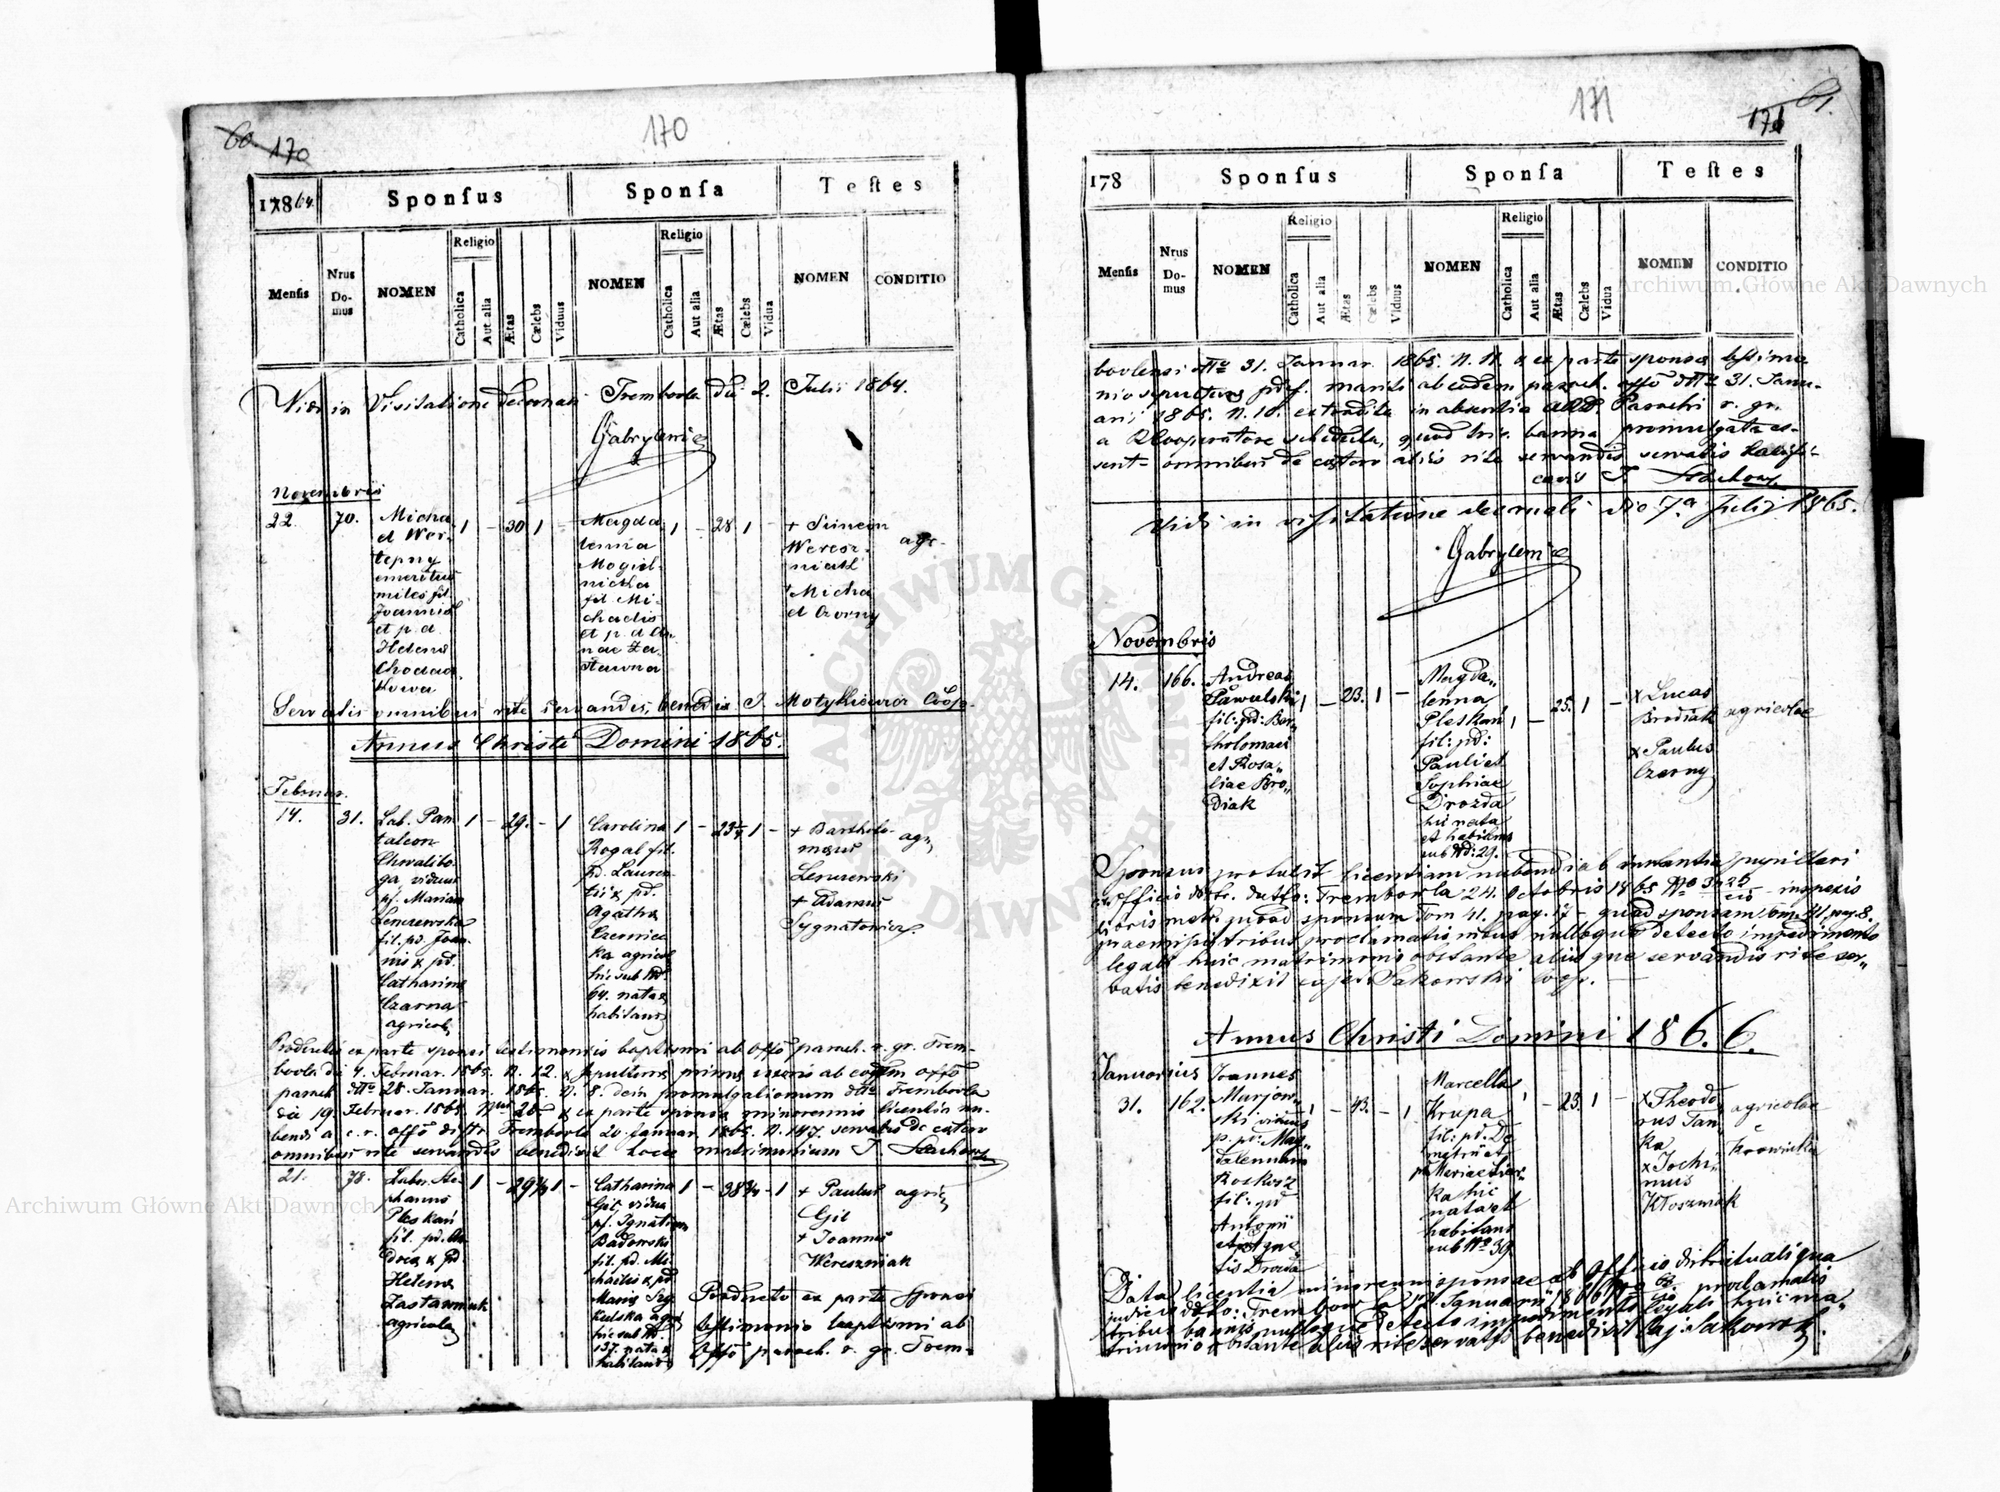 60 170
170
17864.
Sponſus
Sponſa
Teſtes
Menſis
Nrus Domus
NOMEN
Religio
Catholica
Aut alia
Ætas
Cælebs
Viduus
NOMEN
Religio
Catholica
Aut alia
Ætas
Cælebs
Vidua
NOMEN
CONDITIO
Vidi in Visitatione decanali Trembovla die 2. Julii 1864.
Gabrylewicz
Novembris
22.
70.
Micha
el Wer-
tepny
emeritus
miles fil.
Joannis
et p. d.
Helena
Chodac
kowa
1 - 30 1 -
Magda
lenna
Mogiel-
nicka
fil. Mi-
chaelis
et p. d. An
nae Za-
stawna
1 - 28 1 -
+ Simeon
Weresz-
niak
+ Micha
el Czorny
agr.
Servatis omnibus rite servandis, benedix. J. Motykiewicz Coop.
Annus Christi Domini 1865.
Februar.
14.
31.
Lab. Pan
taleon
Chwalibo-
ga viduus
pf. Marian
Lenczewska
fil. pd. Joan-
nis & pd.
Catharina
Czarna
agricol.
1 - 29. - 1
Carolina
Rogal fil.
pd. Lauren-
tii & pd.
Agatha
Czerniec
ka agricol
hic sub N.
64. nata &
habitans
1 - 23 1 -
+ Bartholo-
meus
Lenczewski
+ Adamus
Sygnatowicz
agr.
Producto ex parte sponsi testimoniis baptismi ab Offo paroch. r. gr. Trem-
bovla di 4. Februar. 1865. N. 12. & sepultura prima uxoris ab eodem offo
paroch. dtto 28. Januar. 1865. N. 8. dein promulgationum dtto Trembovla
die 19. Februar. 1865 Nro 28. & ex parte sponsa minorennis licentia nu-
bendi a c. r. offo distr. Trembovla 20. Januar. 1865. N. 147. servatis de cetero
omnibus rite servandis benedixit hocce matrimonium J. Stachow
21.
78.
Labor. Ste-
phanus
Pleskan
fil. pd. An
drea & pd.
Helena
Zastawniuk
agricola
1 - 29 1 -
Catharina
Gil vidua
pf. Ignatii
Badowski
fil. pd. Mi-
chaelis & pd
Maria Szy
kulska agr.
hic sub N.
157. nata &
habitans
1 - 38 - 1
+ Paulus
Gil
+ Joannes
Wereszniak
agric.
Producto ex parte sponsi
testimonio baptismi ab
Offo paroch. r. gr. Trem-
61.
171
171
178
Sponſus
Sponſa
Teſtes
Menſis
Nrus Domus
NOMEN
Religio
Catholica
Aut alia
Ætas
Cælebs
Viduus
NOMEN
Religio
Catholica
Aut alia
Ætas
Cælebs
Vidua
NOMEN
CONDITIO
bovlensi dtto 31. Januar. 1865. N. 11. & ex parte sponsa testimo
nio sepultura pdef. mariti ab eodem paroch. offo dtto 31. Janu-
arii 1865. N. 10. extradita in absentia Parochi r. gr.
a Cooperatore schedula, quod tria banna promulgata es-
sent omnibus de cetero aliis rite servandis servatis
J. Stachow
Vidi in visitatione decanali die 7a Julii 1865.
Gabrylewicz
Novembris
14.
166.
Andreas
Pawulski
fil: pd: Bar-
tholomaei
et Rosa-
liae Bro-
diak
1 - 23. 1 -
Magda-
lenna
Pleskan
fil: pd:
Pauli et
Sophiae
Drozda
hic nata
et habitans
sub N: 29.
1 - 25. 1 -
x Lucas
Brodiak
x Paulus
Czerny
agricolae
Sponsus protulit licentiam nubendi ab instantia pupillari
officio distr. dutto: Trembovla 24. Octobris 1865 No inspexis
libris metr. quoad sponsum Tom 41. pag. 17 - quoad sponsam Tom. 41. pag. 8.
praemissis tribus proclamationibus nulloque detecto impedimento
legali huic matrimonio obstante aliisque servandis rite ser-
vatis benedixit Caj. Sakowski coop.
Annus Christi Domini 1866.
Januarius
31.
162.
Joannes
Marjow-
ski viduus
p. pd: Mag-
dalennam
Koskosz
fil: pd
Antonii
et Agne-
tis Drozda
1 - 43. - 1
Marcella
Krupa
fil: pd. De
metrii et
Mariae
ka hic
nata et
habitans
sub No 39
1 - 23 1 -
x Theodo
rus Pan
ka
x Jochi-
mus
Kloszniak
agricolae
Krowinka
Data licentia minorenni sponsae ab officio districtuali qua
jud: dutto: Trembovla Januarii 1866 No proclamatis
tribus bannis nulloque detecto impedimento legali huic ma-
trimonio obstante aliis rite servatis benedixit Caj. Sakowski.
Archiwum Główne Akt Dawnych
Archiwum Główne Akt Dawnych
ARCHIWUM GŁÓWNE AKT DAWNYCH